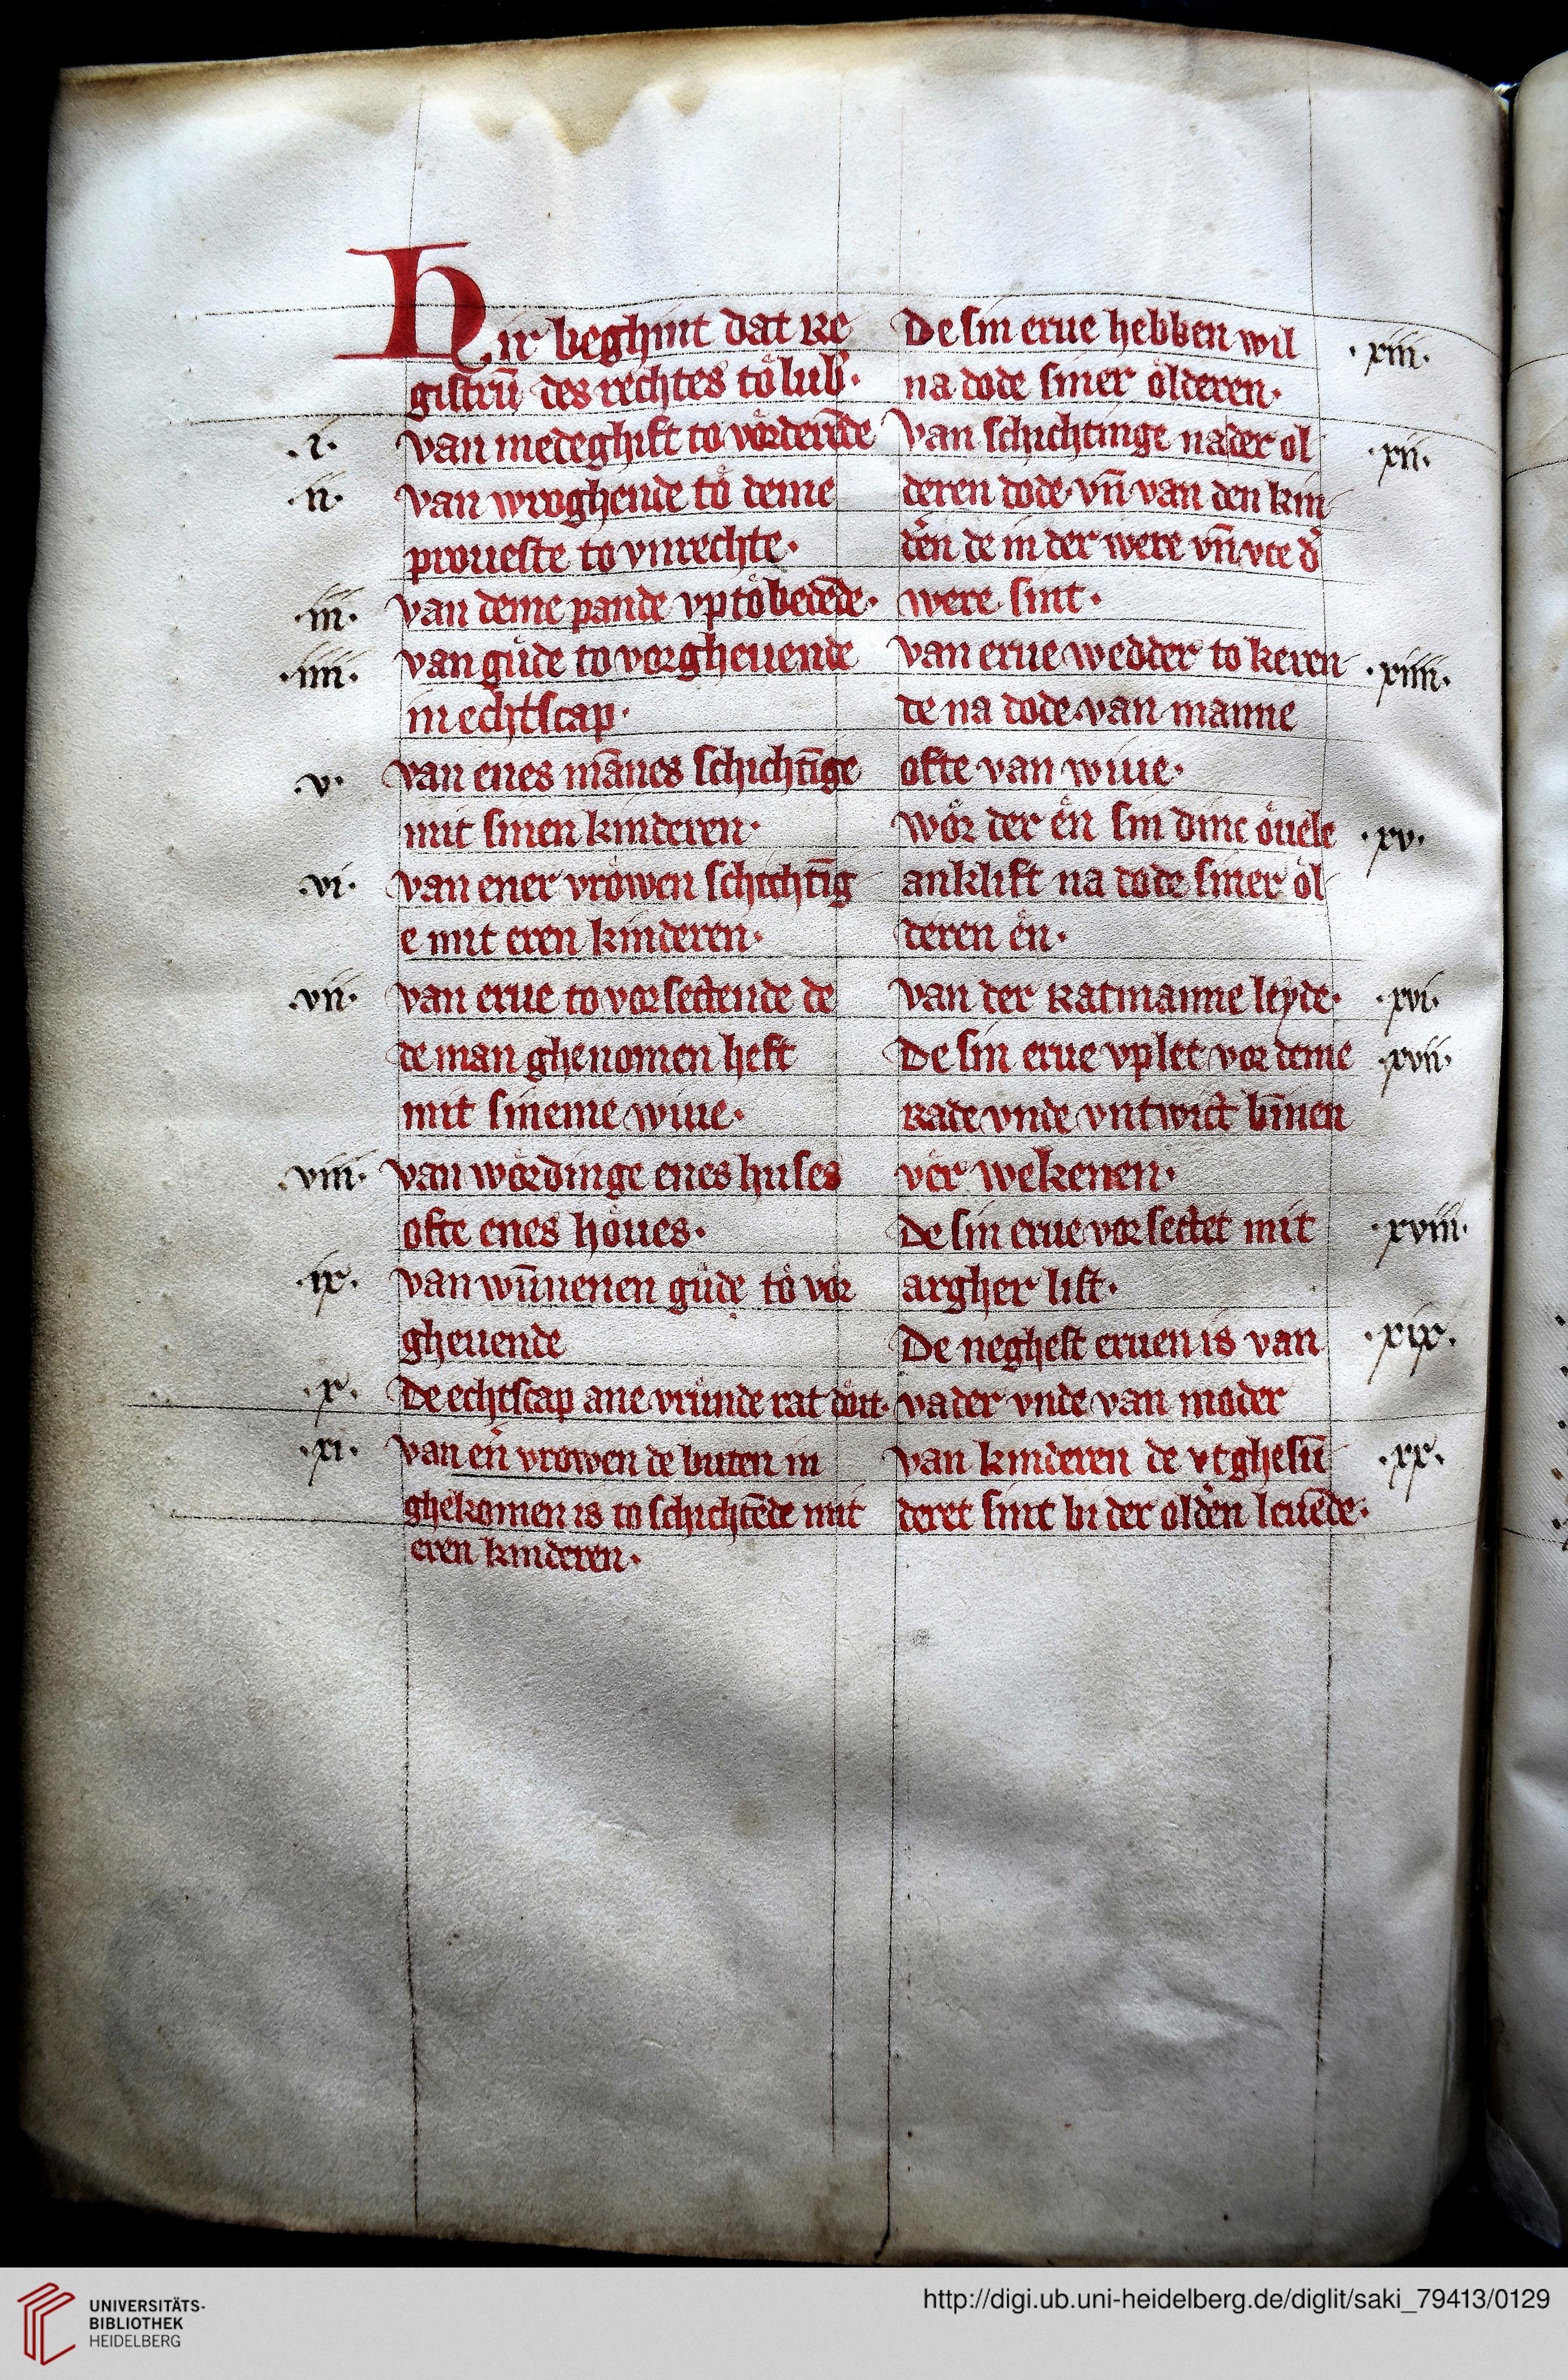 Hir beghint dat re
gistrū des rechtes tolub̾.
.i. van medeghift to vorderēde
.ii. van wroghende to deme
proueste to vnrechte.
.iii. van deme pande vp to bedēde.
.iiii. van gude to vorgheuende
in echtscap.
.v. van enes mānes schichtīge
mit sinen kinderen.
.vi. van ener vrowen schichtīg
e mit eren kinderen.
.vii. van erue to vorsettende de
de man ghenomen heft
mit sineme wiue.
.viii. van wordinge enes huses
ofte enes houes.
.ix. van wūnenen gude to vor
gheuende
.x. De echtscap ane vrunde rat dott.
.xi. van en̄ vrowen de buten in
ghekomen is to schichtēde mit
eren kinderen.
De sin erue hebben wil .xiii.
na dode siner olderen.
van schichtinge na der ol .xii.
deren dode vn̄ van den kin
deen de in der were vn̄ vte d̾
were sint.
van erue wedder to keren .xiiii.
de na dode van manne
ofte van wiue.
wor der en sin dinc ouele .xv.
anklift na dode siner ol
deren en.
van der ratmanne leyde. .xvi.
De sin erue vplet vor deme .xvii.
rade vnde vntwict bīnen
ver wekenen.
De sin erue vorsettet mit .xviii.
argher list.
De neghest eruen is van .xix.
vader vnde van moder
van kinderen de vtghesū .xx.
deret sint bi der olden leuēde.
UNIVERSITÄTS-
BIBLIOTHEK
HEIDELBERG
http://digi.ub.uni-heidelberg.de/diglit/saki_79413/0129